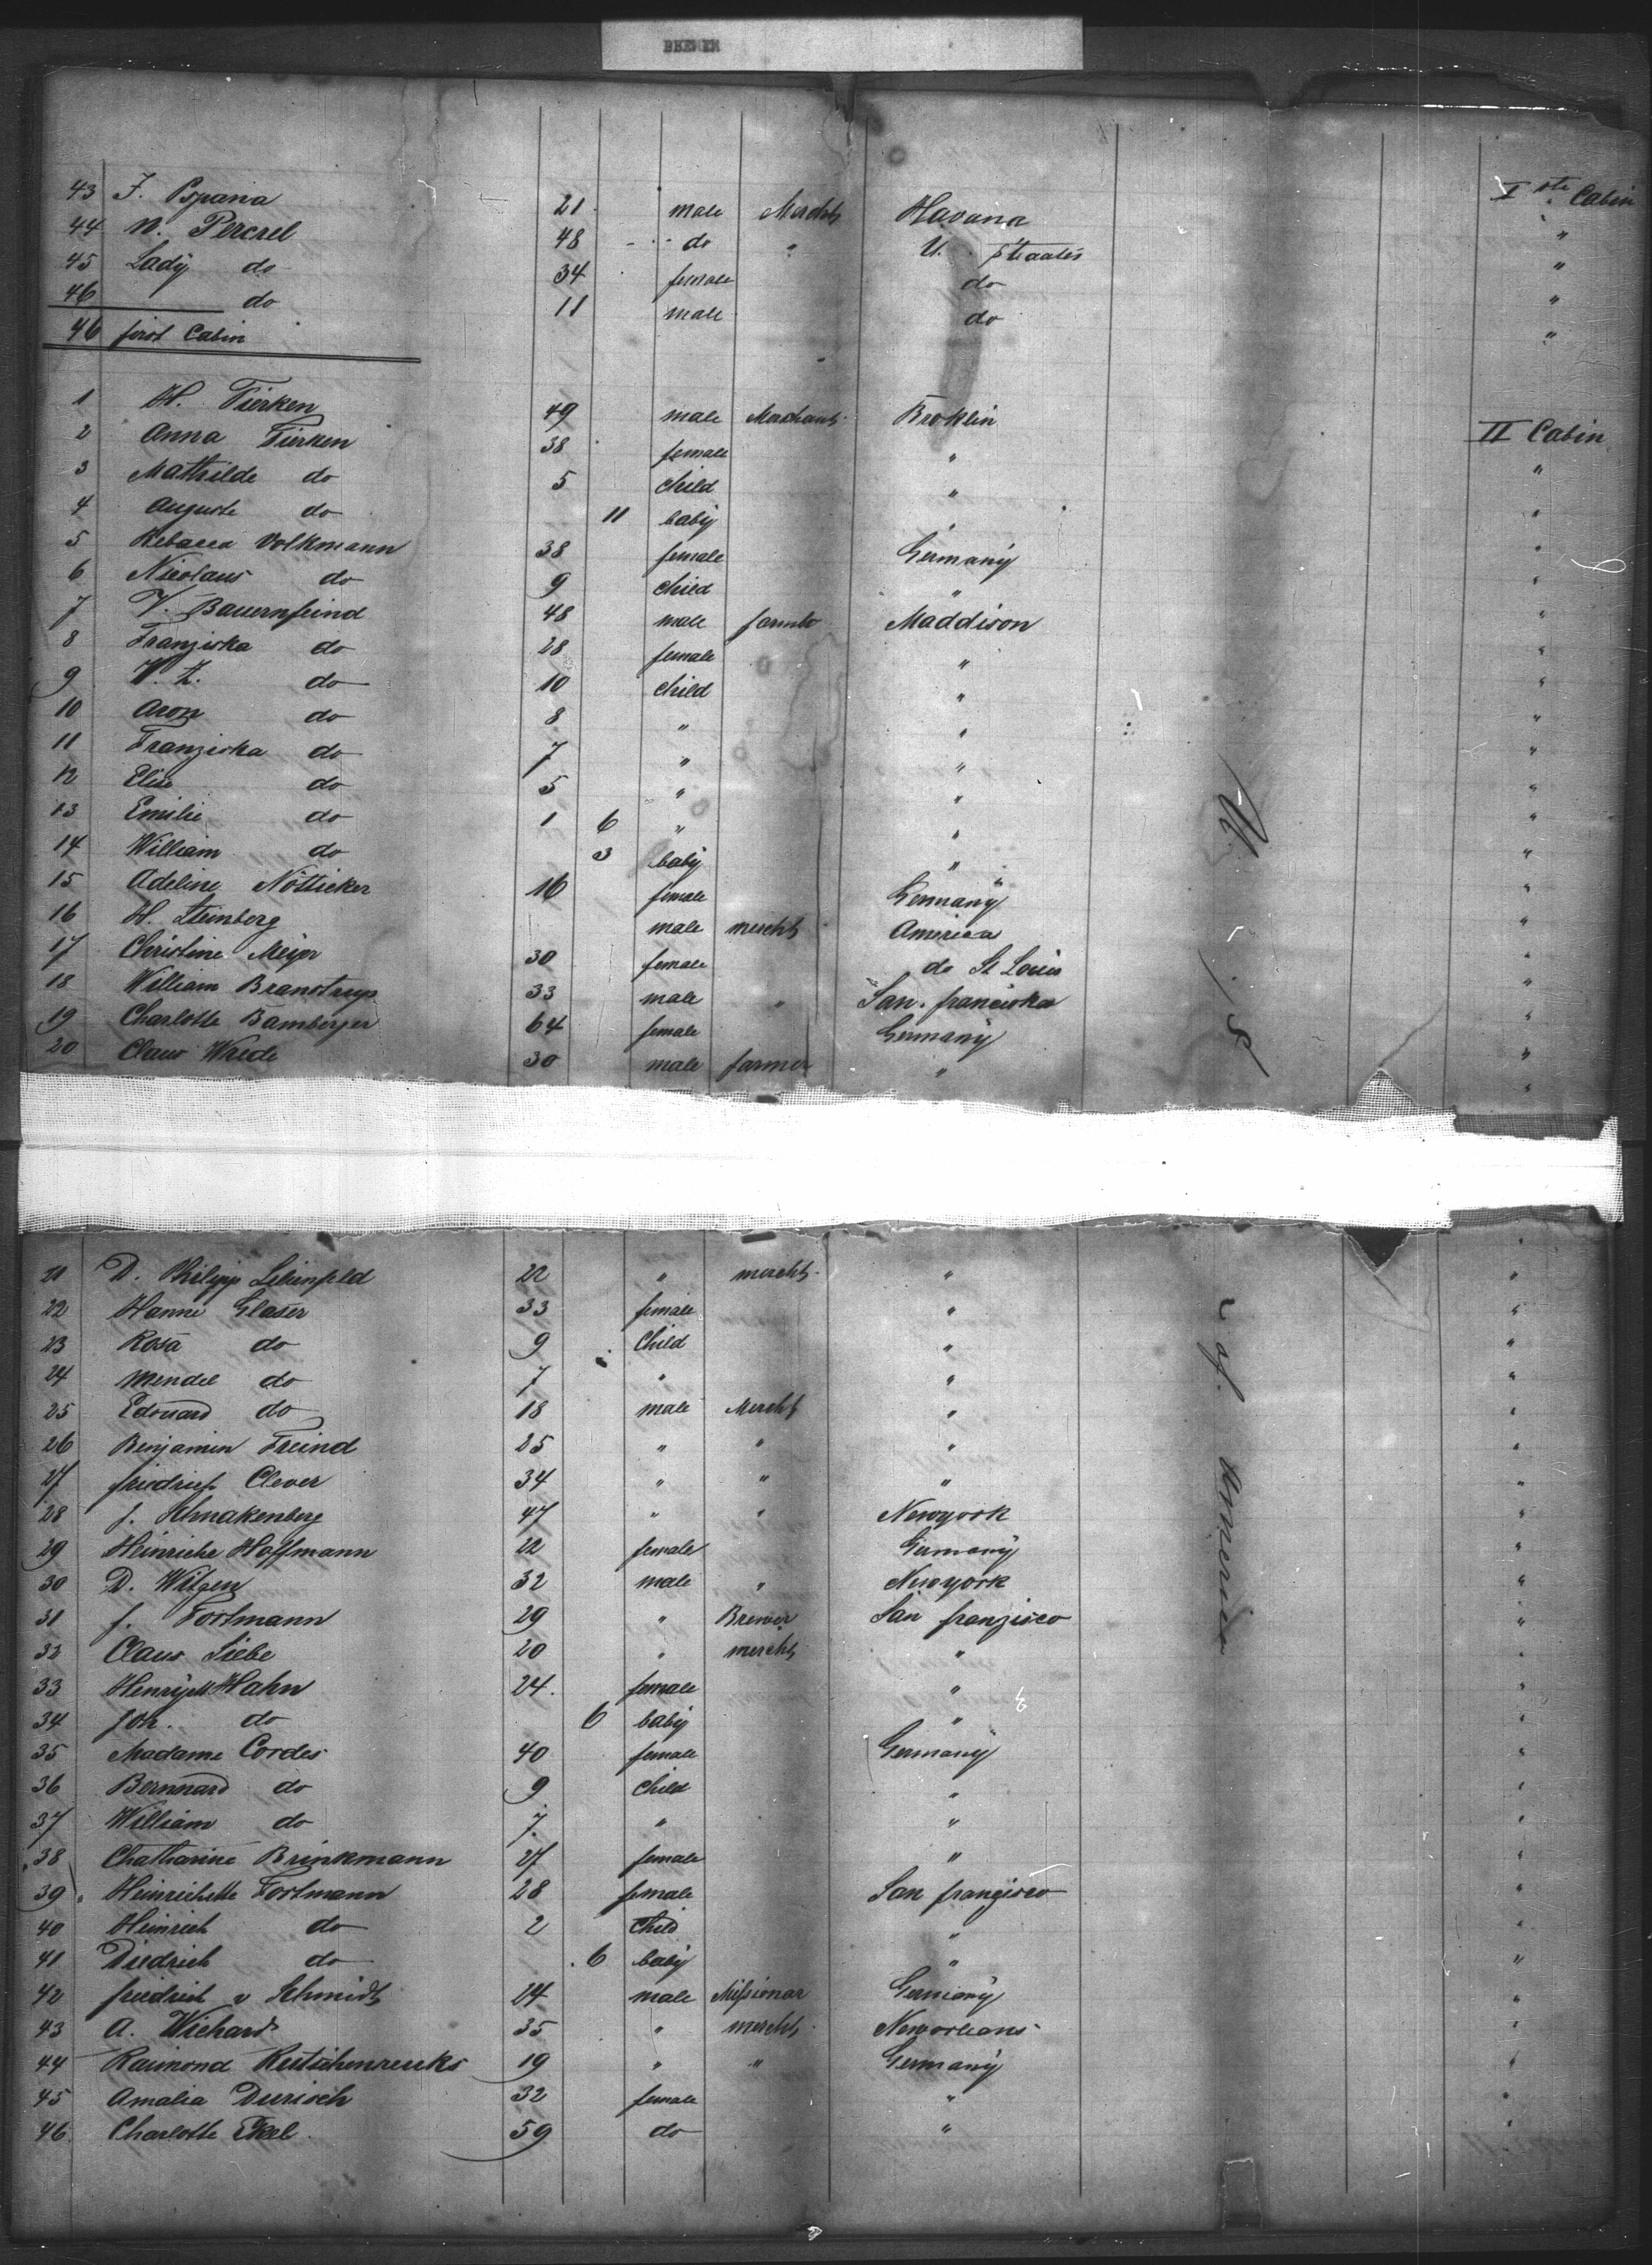 BREMEN
43 F. Espana 21 male Merchts Havana Iste Cabin
44 N. Percrel 48 do " U. Staates "
45 Lady do 34 female do "
46 do 11 male do "
46 first Cabin "
1 H. Tierken 49 male Merchant Broklin II Cabin
2 Anna Tierken 38 female " "
3 Mathilde do 5 child " "
4 Auguste do 11 baby " "
5 Rebacca Volkmann 38 female Germany "
6 Nicolaus do 9 child " "
7 V. Bauernfeind 48 male Maddison "
8 Franziska do 28 female " "
9 V. Z. do 10 child " "
10 Aron do 8 " " "
11 Franziska do 7 " " "
12 Elise do 5 " " "
13 Emilie do 1 6 " " "
14 William do 3 baby " "
15 Adeline Nötticker 16 female Germany "
16 H. Steinberg male mercht America "
17 Christine Meijer 30 female do St Louis "
18 William Branstrup 33 male " San. franciska "
19 Charlotte Bamberger 64 female Germany "
20 Claus Wrede 30 male farmer " "
U. S.
21 D. Philipp Lilienfeld 22 " mercht " "
22 Hanne Glaser 33 female " "
23 Rosa do 9 Child " "
24 Mendel do 7 " " "
25 Edouard do 18 male Mercht " "
26 Benjamin Freind 25 " " " "
27 friedrich Clever 34 " " " "
28 J. Schnakenberg 47 " " Newyork "
29 Heinriche Hoffmann 22 female Germany "
30 D. Witgen 32 male " Newyork "
31 J. Fortmann 29 " Brewer San franzisco "
32 Claus Siebe 20 " mercht " "
33 Hahn 24 female " "
34 Joh. do 6 baby " "
35 Madame Cordes 40 female Germany "
36 Bernnard do 9 Child " "
37 William do 7 " " "
38 Chatharine Brinkmann 27 female " "
39 Heinrichette Fortmann 28 female San franzisco "
40 Heinrich do 2 Child " "
41 Diedrich do 6 baby " "
42 friedrich v Schmidt 24 male Missionar Germany "
43 A. Wichard 35 " mercht Neworleans "
44 Raimond 19 " " Germany "
45 Amalia Durisch 32 female " "
46 Charlotte Ekel 59 do " "
of America